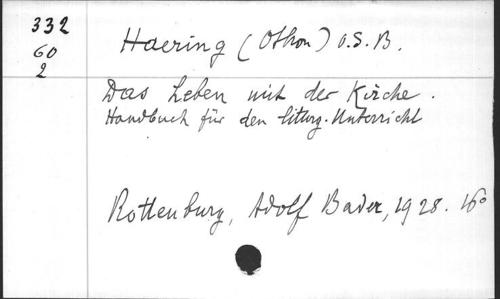 332
60
2
Haering (Othon) O.S.B.
Das Leben mit der Kirche.
Handbuch für den liturg. Unterricht
Rottenburg, Adolf Bader, 1928. 16°